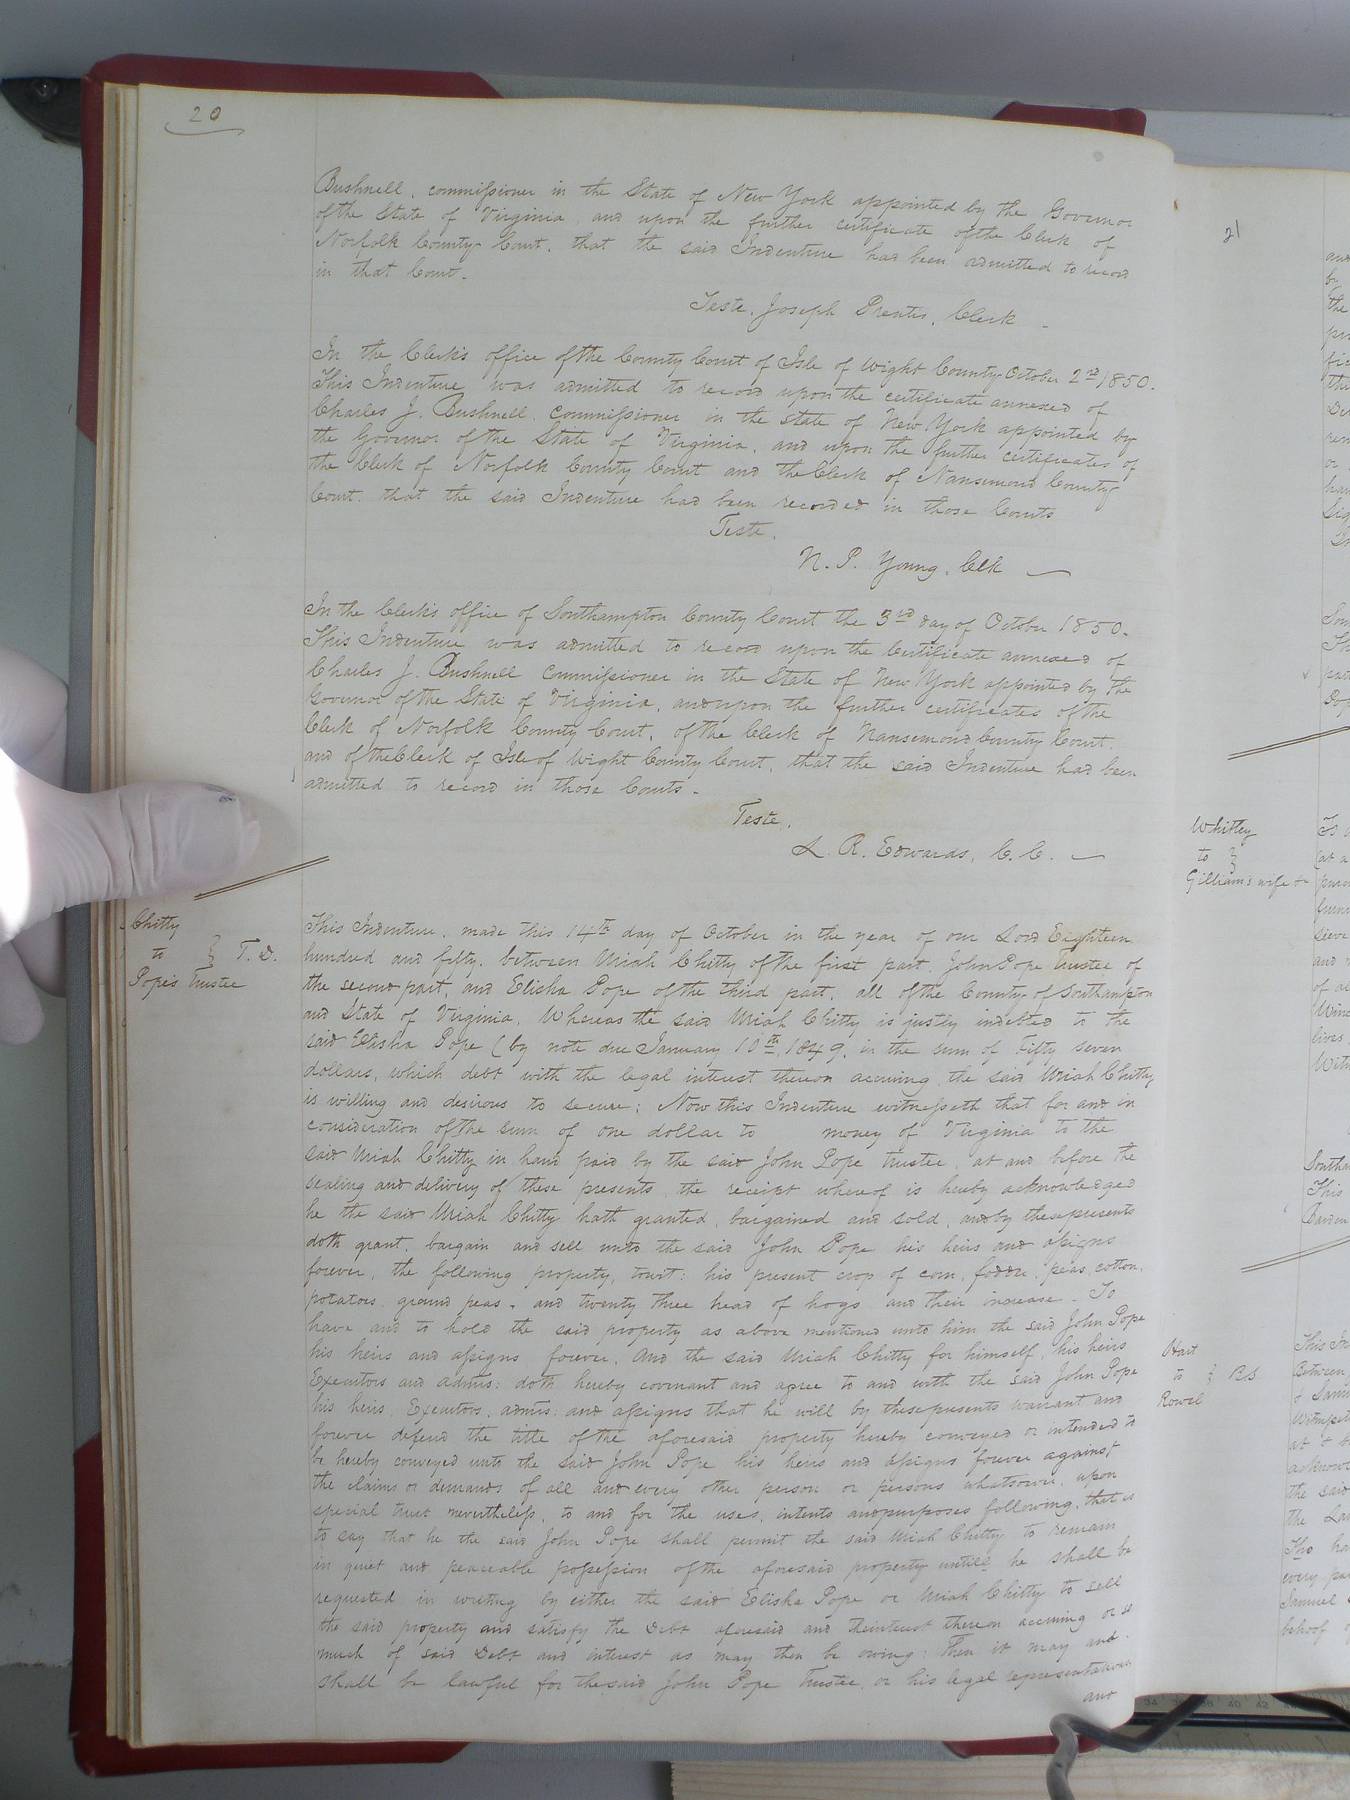 20
Bushnell, commissioner in the State of New York appointed by the Governor
of the State of Virginia, and upon the further certificate of the Clerk of
Norfolk County Court, that the said Indenture had been admitted to record
in that Court.
Teste, Joseph Prentis, Clerk
In the Clerk's office of the County Court of Isle of Wight County October 2nd 1850.
This Indenture was admitted to record upon the certificate annexed of
Charles J. Bushnell, commissioner in the State of New York appointed by
the Governor of the State of Virginia, and upon the further certificates of
the Clerk of Norfolk County Court and the Clerk of Nansemond County
Court, that the said Indenture had been recorded in those Courts
Teste,
N. P. Young, Clk
In the Clerk's office of Southampton County Court the 3rd day of October 1850.
This Indenture was admitted to record upon the Certificate annexed of
Charles J. Bushnell Commissioner in the State of New York appointed by the
Governor of the State of Virginia, and upon the further certificates of the
Clerk of Norfolk County Court, of the Clerk of Nansemond County Court,
and of the Clerk of Isle of Wight County Court, that the said Indenture had been
admitted to record in those Courts.
Teste,
L. R. Edwards, C. C.
Chitty
to } T. D.
Pope's Trustee
This Indenture, made this 14th day of October in the year of our Lord Eighteen
hundred and fifty, between Uriah Chitty of the first part, John Pope Trustee of
the second part, and Elisha Pope of the third part, all of the County of Southampton
and State of Virginia. Whereas the said Uriah Chitty is justly indebted to the
said Elisha Pope (by note due January 10th, 1849, in the sum of Fifty seven
dollars, which debt with the legal interest thereon accruing, the said Uriah Chitty
is willing and desirous to secure; Now this Indenture witnesseth that for and in
consideration of the sum of one dollar to money of Virginia to the
said Uriah Chitty in hand paid by the said John Pope trustee, at and before the
sealing and delivery of these presents, the receipt whereof is hereby acknowledged
he the said Uriah Chitty hath granted, bargained and sold, and by these presents
doth grant, bargain and sell unto the said John Pope his heirs and assigns
forever, the following property, towit: his present crop of corn, fodder, peas, cotton,
potatoes, ground peas, and twenty three head of hogs and their increase. To
have and to hold the said property as above mentioned unto him the said John Pope
his heirs and assigns forever. And the said Uriah Chitty for himself, his heirs
Executors and admrs: doth hereby covenant and agree to and with the said John Pope
his heirs, Executors, admrs: and assigns that he will by these presents warrant and
forever defend the title of the aforesaid property hereby conveyed or intended to
be hereby conveyed unto the said John Pope his heirs and assigns forever against
the claims or demands of all and every other person or persons whatsoever, upon
special trust nevertheless, to and for the uses, intents and purposes following, that is
to say that he the said John Pope shall permit the said Uriah Chitty to remain
in quiet and peaceable possession of the aforesaid property untill he shall be
requested in writing by either the said Elisha Pope or Uriah Chitty to sell
the said property and satisfy the Debt aforesaid and the interest thereon accruing or so
much of said Debt and interest as may then be owing; Then it may and
shall be lawful for the said John Pope Trustee, or his legal representatives
and
21
Whitley
to }
Gilliam's wife
Hart
to } BS
Rowel